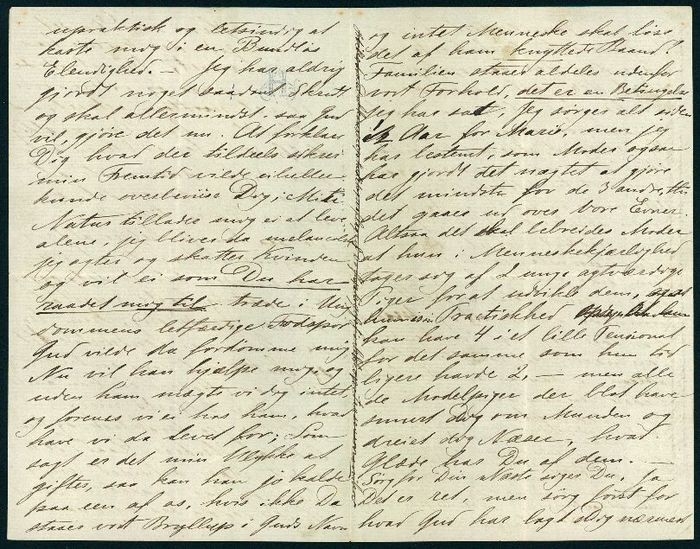 upraktisk og letsindig at
kaste mig i en Bundløs
Elendighed. — Jeg har aldrig
gjordt noget saadan Skridt
og skal allermindst, saa Gud
vil, gjøre det nu. At forklare
Dig hvad der tildeels sikrer
min Fremtid vilde ei heller
kunde overbeviise Dig; Min
Natur tillader mig ei at leve
alene, jeg bliver da melancolsk
jeg agter og skatter Kvinden
og vil ei som Du har
raadet mig til træde i Un
dommens letfærdige Fodspor
Gud vilde da fordømme mig
Nu vil han hjælpe mig, og
uden ham magte vi dog intet,
og forenes vi ei hos ham, hvad
have vi da levet for; Som
sagt er det min Ulykke at
giftes, saa kan han jo kalde
paa een af os, hvis ikke Da
staaer vort Bryllup i Guds Navn
og intet Menneske skal løse
det af ham knyttede Baand!
Familien staaer aldeles udenfor
vort Forhold, det er en Betingelse
jeg har sat, Jeg sørger alt siden
Aar for Marie, men jeg
har bestemt, som Moder ogsaa
har gjordt det nægtet at gjøre
det mindste for de 3 andre, thi
det gaaer ud over Vore Evner
Altsaa det skal bebreides Moder
at hun i Menneskekjærlighed
tager sig af 2 unge agtværdige
Piger for at udvikle dem,
Practiskhed
kan have 4 i et lille Pensionat
for det samme som hun tid
ligere havde 2, — men alle
de Modelpiger der blot have
smurt dig om Munden og
dreiet dig Næsen, hvad
Glæde har Du af dem. —
Sørg for Din næste siger Du, ja
Det er ret, men sørg først for
hvad Gud har lagt dig nærmest